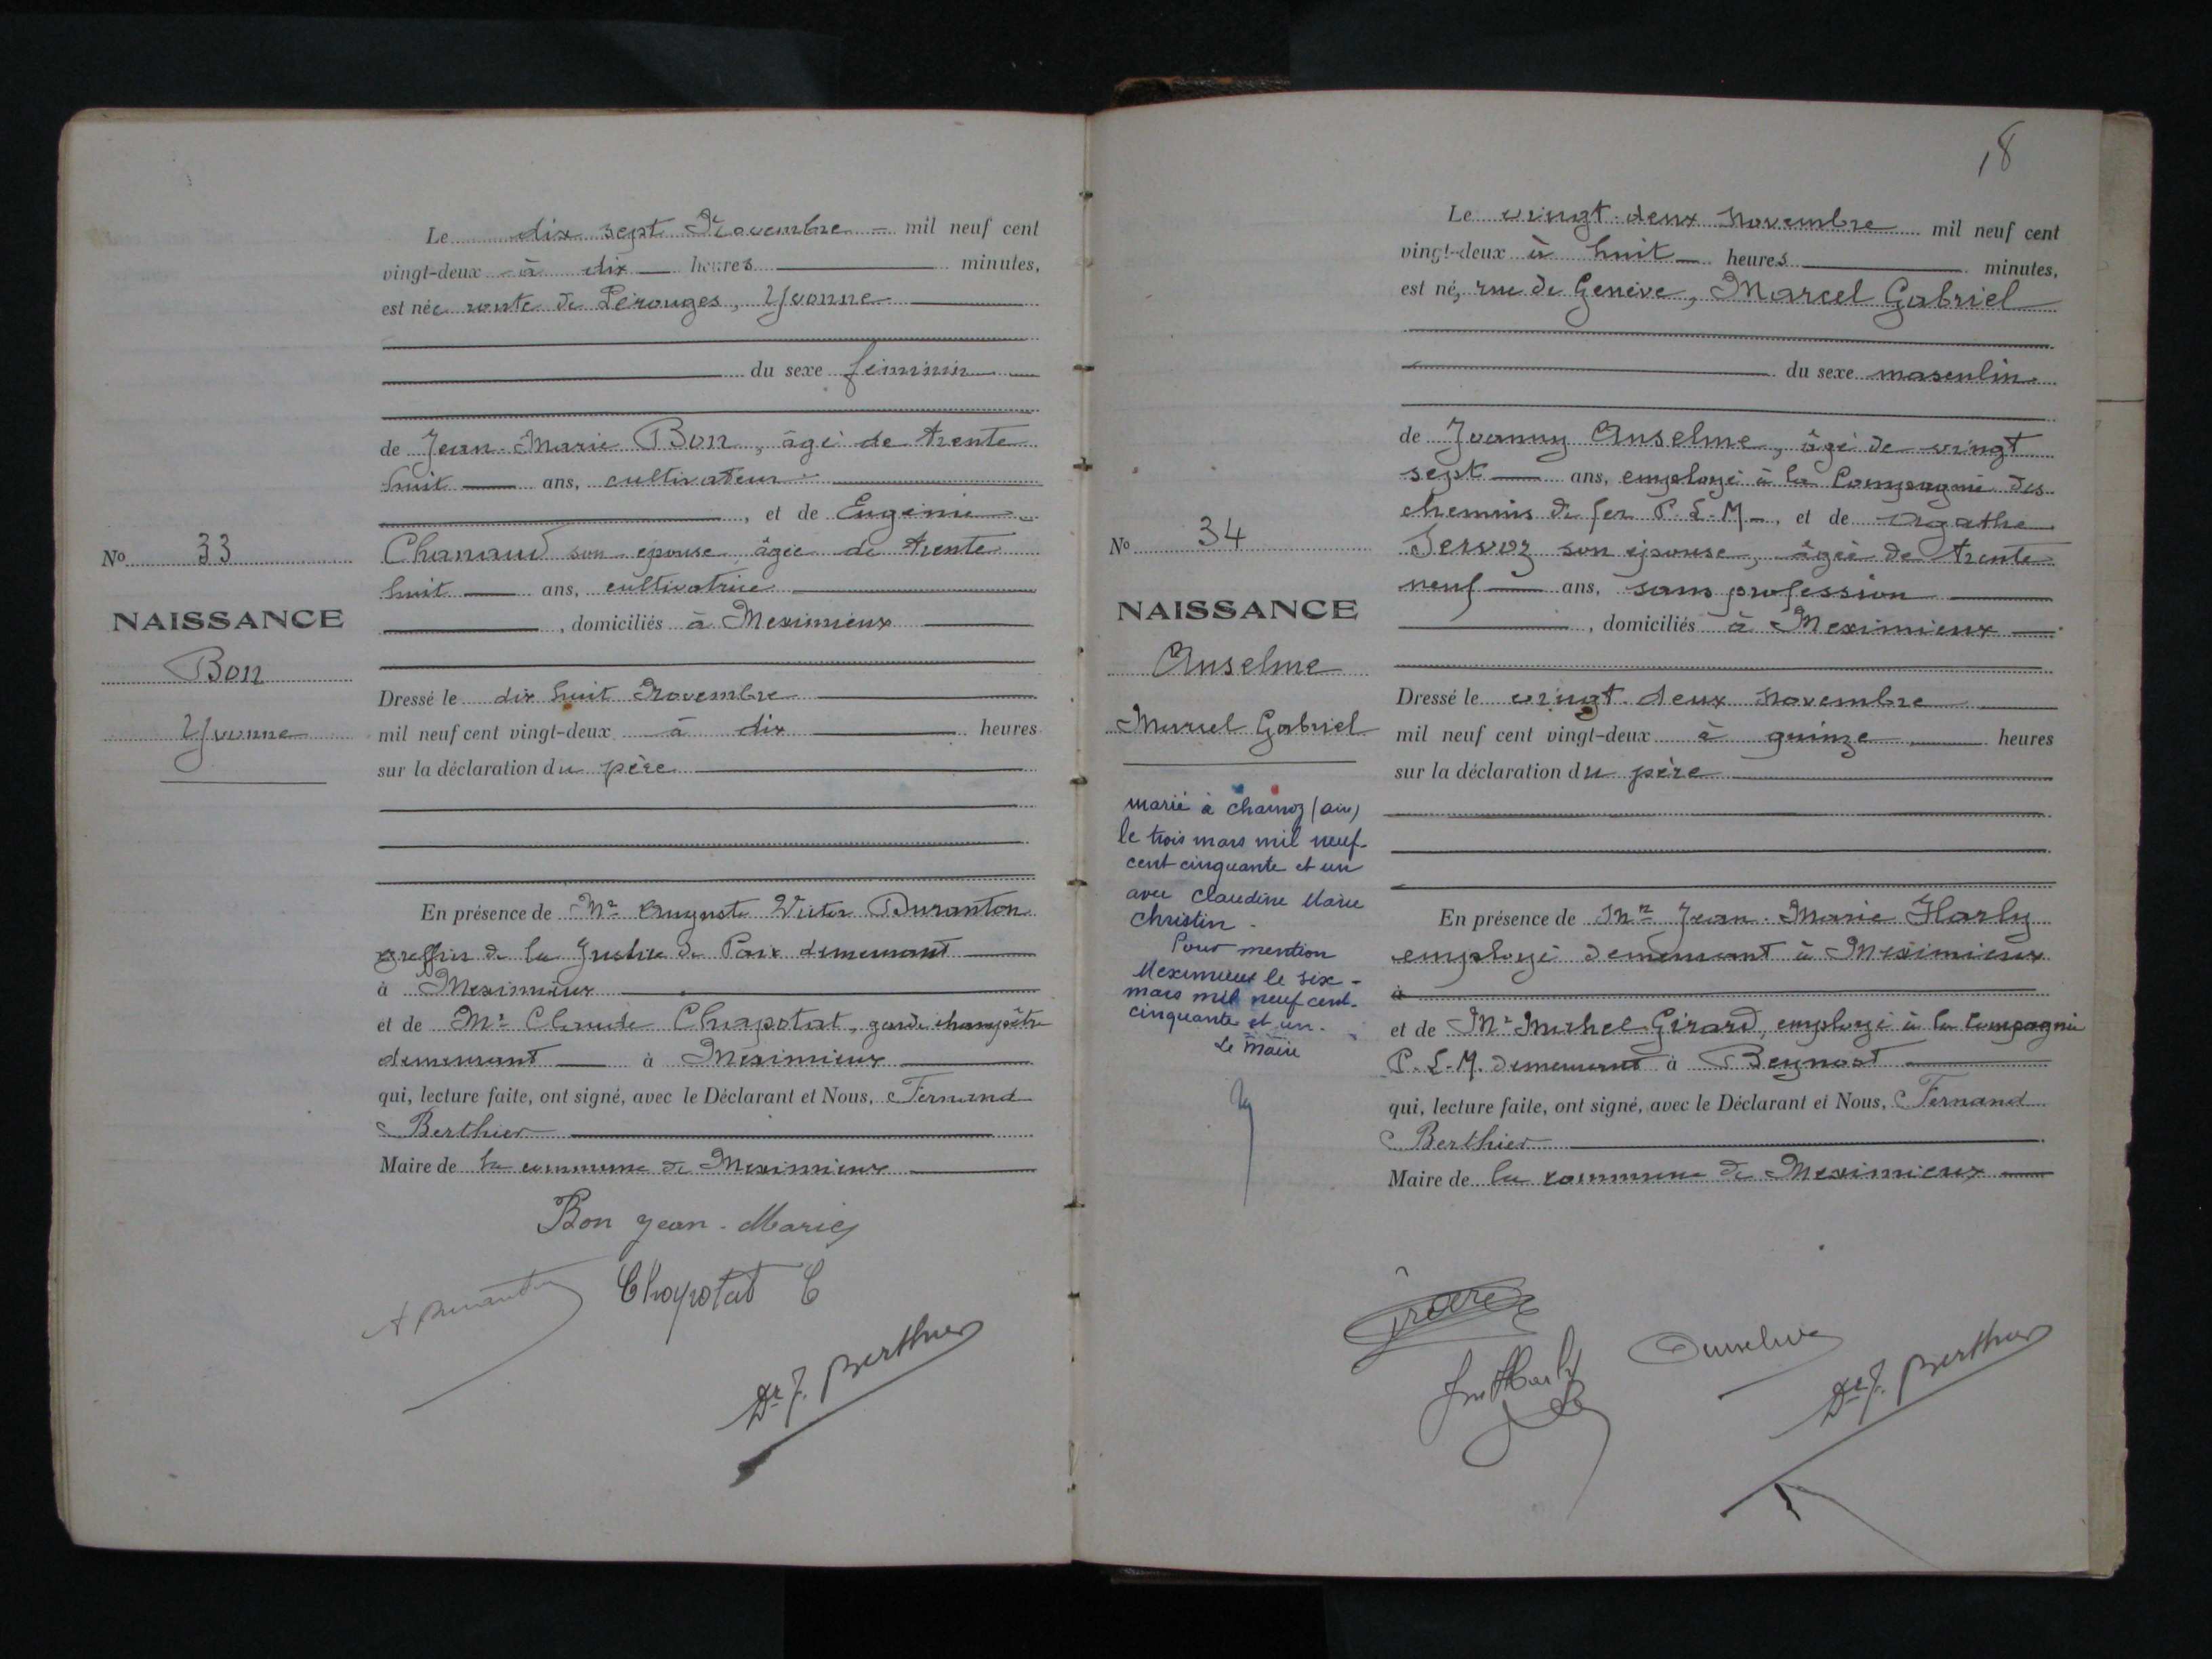 Le dix sept Novembre mil neuf cent
vingt-deux à dix heures minutes,
est née route de Pérouges, Yvonne
du sexe féminin
de Jean-Marie Bon, âgé de trente
huit ans, cultivateur
, et de Eugénie
No 33
Chanaud son épouse âgée de trente
huit ans, cultivatrice
NAISSANCE
, domiciliés à Meximieux
Bon
Dressé le dix huit Novembre
Yvonne
mil neuf cent vingt-deux à dix heures
sur la déclaration du père
En présence de Mr Auguste Victor Duranton
greffier de la Justice de Paix demeurant
à Meximieux
et de Mr Claude Chapotat, garde champêtre
demeurant à Meximieux
qui, lecture faite, ont signé, avec le Déclarant et Nous, Fernand
Berthier
Maire de la commune de Meximieux
Bon Jean-Marie
A Duranton Chapotat C
Dr F. Berthier
18
Le vingt-deux Novembre mil neuf cent
vingt-deux à huit heures minutes,
est né, rue de Genève, Marcel Gabriel
du sexe masculin
de Joanny Anselme, âgé de vingt
sept ans, employé à la Compagnie des
chemins de fer P.L.M., et de Agathe
No 34
Servoz son épouse, âgée de trente
neuf ans, sans profession
NAISSANCE
, domiciliés à Meximieux
Anselme
Dressé le vingt-deux Novembre
Marcel Gabriel
mil neuf cent vingt-deux à quinze heures
sur la déclaration du père
marié à Chamoz (ain)
le trois mars mil neuf
cent cinquante et un
avec Claudine Marie
Christin.
Pour mention
Meximieux le six
mars mil neuf cent
cinquante et un.
Le Maire
En présence de Mr Jean-Marie Harly
employé demeurant à Meximieux
à
et de Mr Michel Girard, employé à la Compagnie
P.L.M. demeurant à Beynost
qui, lecture faite, ont signé, avec le Déclarant et Nous, Fernand
Berthier
Maire de la commune de Meximieux
Anselme
Dr F. Berthier